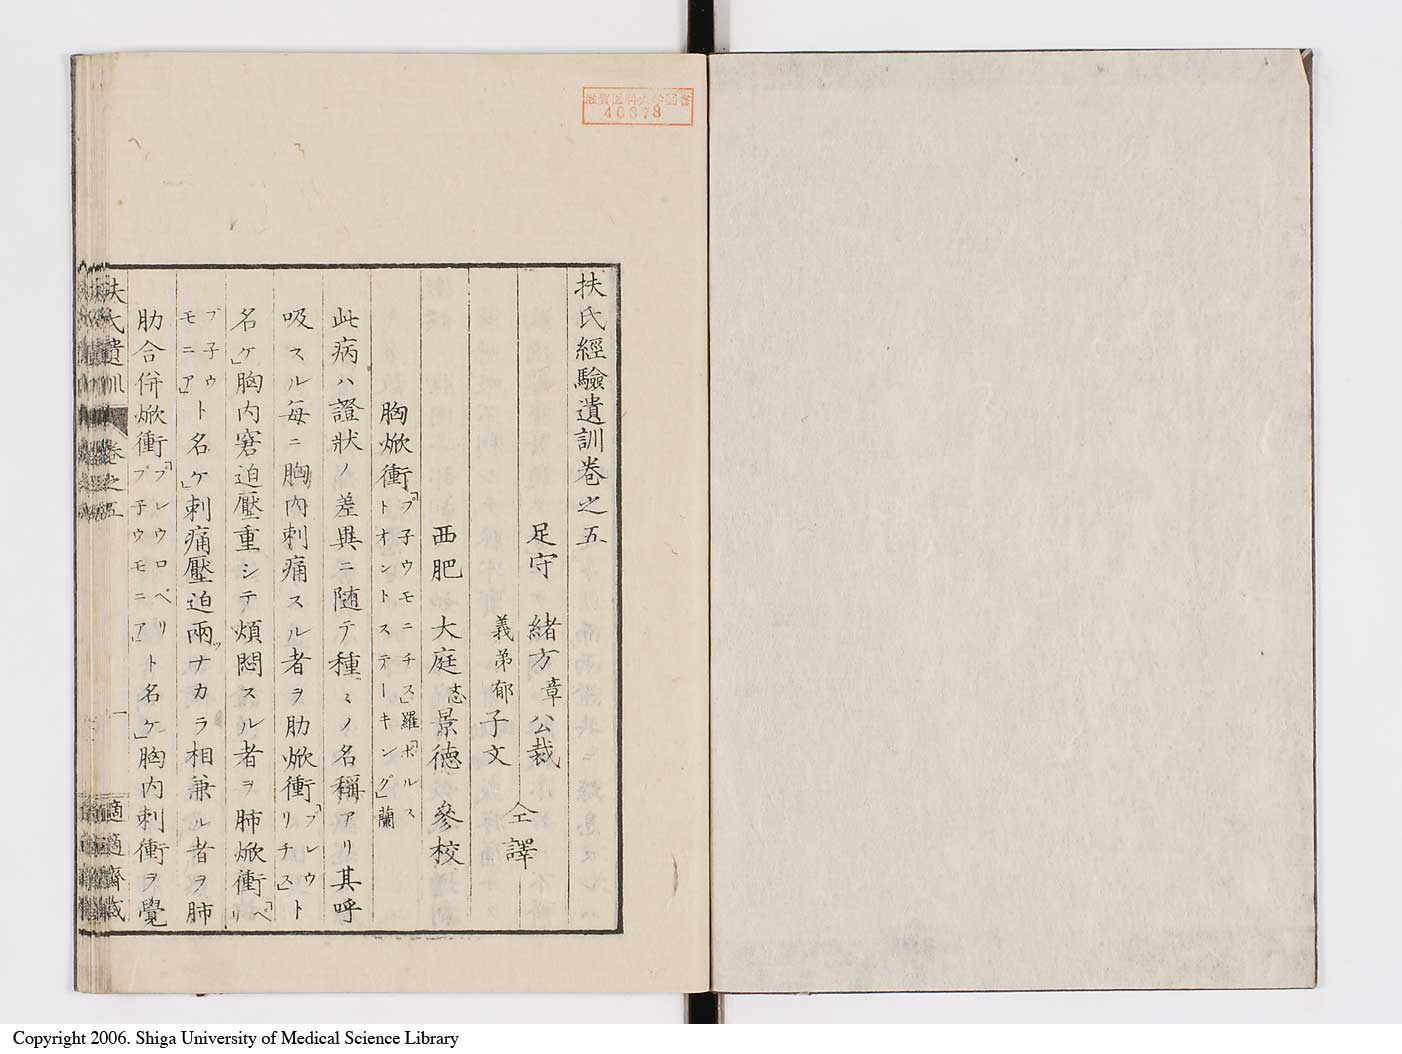 滋賀医科大学図書
40378
扶氏經驗遺訓卷之五
足守 緒方 章 公裁
義弟 郁 子文
仝譯
西肥 大庭 忞 景德 參校
胸焮衝「プ子ウモニチス」羅「ボルストオントステーキング」蘭
此病ハ證狀ノ差異ニ随テ種々ノ名稱アリ其呼
吸スル每ニ胸內刺痛スル者ヲ肋焮衝「プレウリチス」ト
名ケ」胸內窘迫壓重シテ煩悶スル者ヲ肺焮衝「ペリ
プ子ウモニア」ト名ケ」刺痛壓迫兩ツナカラ相兼ル者ヲ肺
肋合併焮衝「プレウロペリプ子ウモニア」ト名ケ」胸內刺衝ヲ覺
扶氏遺訓 卷之五 一 適適齋藏
Copyright 2006. Shiga University of Medical Science Library